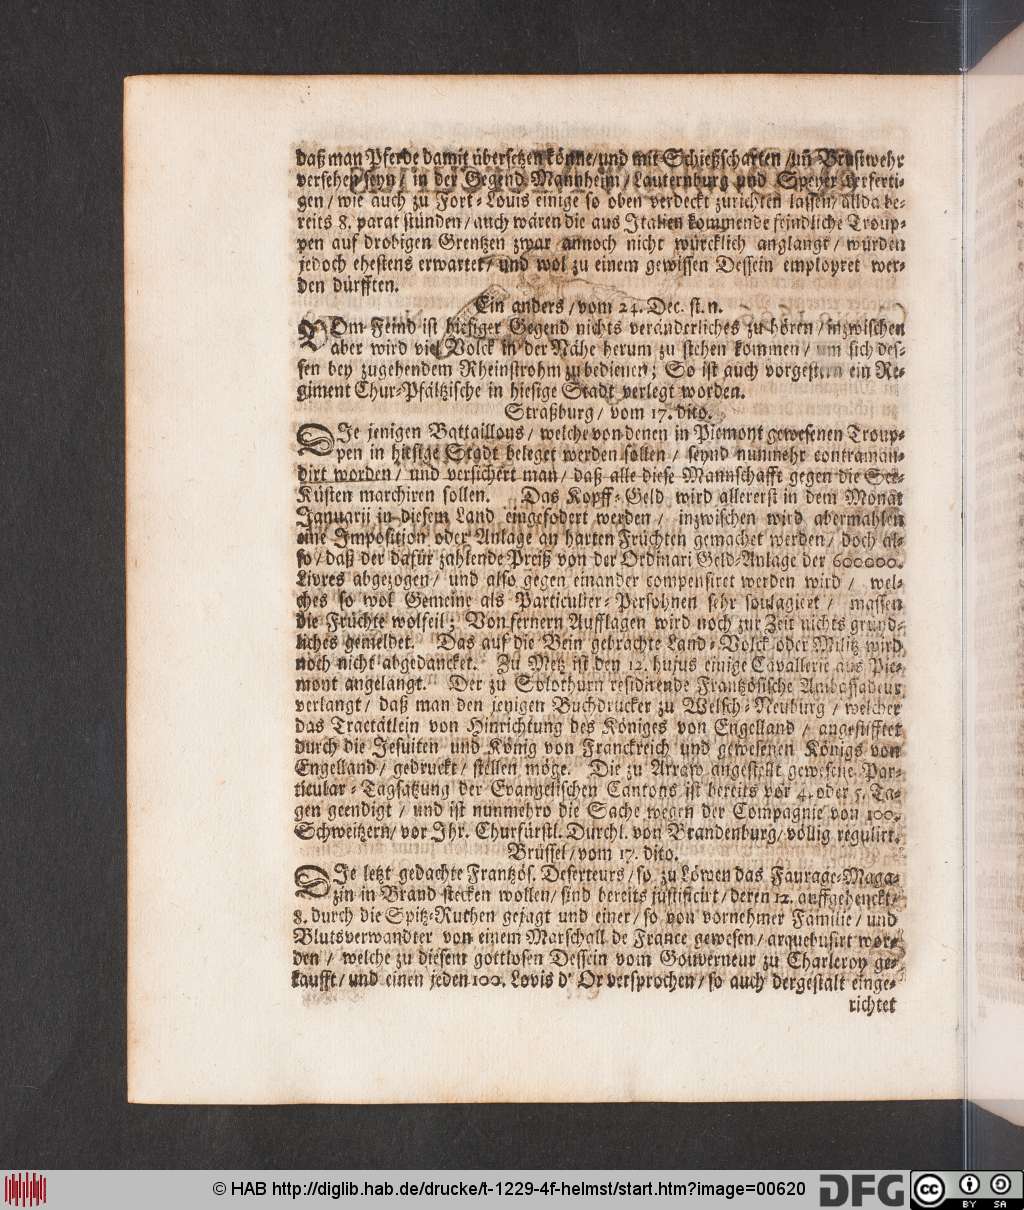 daß man Pferde damit übersetzen könne/und mit Schießscharten /uñ Brustwehr
versehen seyn/ in der Gegend Mannheim/Lauternburg und Speyer verferti-
gen/wie auch zu Fort-Louis einige so oben verdeckt zurichten lassen/allda be-
reits 8. parat stünden/auch wären die aus Italien kommende feindliche Troup-
pen auf drobigen Grentzen zwar annoch nicht würcklich anglangt/ würden
jedoch ehestens erwartet/ und wol zu einem gewissen Dessein employret wer-
den dürfften.
Ein anders/vom 24. Dec. st. n.
VOm Feind ist hiesiger Gegend nichts veränderliches zu hören/inzwischen
aber wird viel Volck in der Nähe herum zu stehen kommen/ um sich des-
sen bey zugehendem Rheinstrohm zubedienen; So ist auch vorgestern ein Re-
giment Chur-Pfältzische in hiesige Stadt verlegt worden.
Straßburg/ vom 17. dito.
DIe jenigen Battaillons/ welche von denen in Piemont gewesenen Troup-
pen in hiesige Stadt beleget werden sollen/ seynd nunmehr contraman-
dirt worden/ und versichert man/ daß alle diese Mannschafft gegen die See-
Küsten marchiren sollen. Das Kopff-Geld wird allererst in dem Monat
Januarii in diesem Land eingefodert werden/ inzwischen wird abermahlen
eine Imposition oder Anlage an harten Früchten gemachet werden/ doch al-
so/daß der dafür zahlende Preiß von der Ordinari Geld-Anlage der 600000.
Livres abgezogen/ und also gegen einander compensiret werden wird/ wel-
ches so wol Gemeine als Particulier-Persohnen sehr soulagieret/ massen
die Früchte wolfeil; Von fernern Aufflagen wird noch zur Zeit nichts gründ-
liches gemeldet. Das auf die Bein gebrachte Land-Volck oder Militz wird
noch nicht abgedancket. Zu Metz ist den 12. hujus einige Cavallerie aus Pie-
mont angelangt. Der zu Solothurn residirende Frantzösische Ambassadeur
verlangt/ daß man den jenigen Buchdrucker zu Welsch-Neuburg/ welcher
das Traetätlein von Hinrichtung des Königes von Engelland/ angestifftet
durch die Jesuiten und König von Franckreich und gewesenen Königs von
Engelland/ gedruckt/ stellen möge. Die zu Arraw angestellt gewesene Par-
ticular-Tagsatzung der Evangelischen Cantons ist bereits vor 4. oder 5. Ta-
gen geendigt/ und ist nunmehro die Sache wegen der Compagnie von 100.
Schweitzern/vor Ihr. Churfürstl. Durchl. von Brandenburg/völlig regulirt.
Brüssel/vom 17. dito.
DIe letzt gedachte Frantzös. Deserteurs/so zu Löwen das Faurage-Maga-
zin in Brand stecken wollen/sind bereits justificirt/deren 12. auffgehenckt/
8. durch die Spitz-Ruthen gejagt und einer/so von vornehmer Familie/und
Blutsverwandter von einem Marschall de France gewesen/arquebusirt wor-
den/ welche zu diesem gottlosen Dessein vom Gouverneur zu Charleroy ge-
kaufft/und einen jeden 100. Lovis d' Or versprochen/so auch dergestalt einge-
richtet
© HAB http://diglib.hab.de/drucke/t-1229-4f-helmst/start.htm?image=00620 DFG cc BY SA